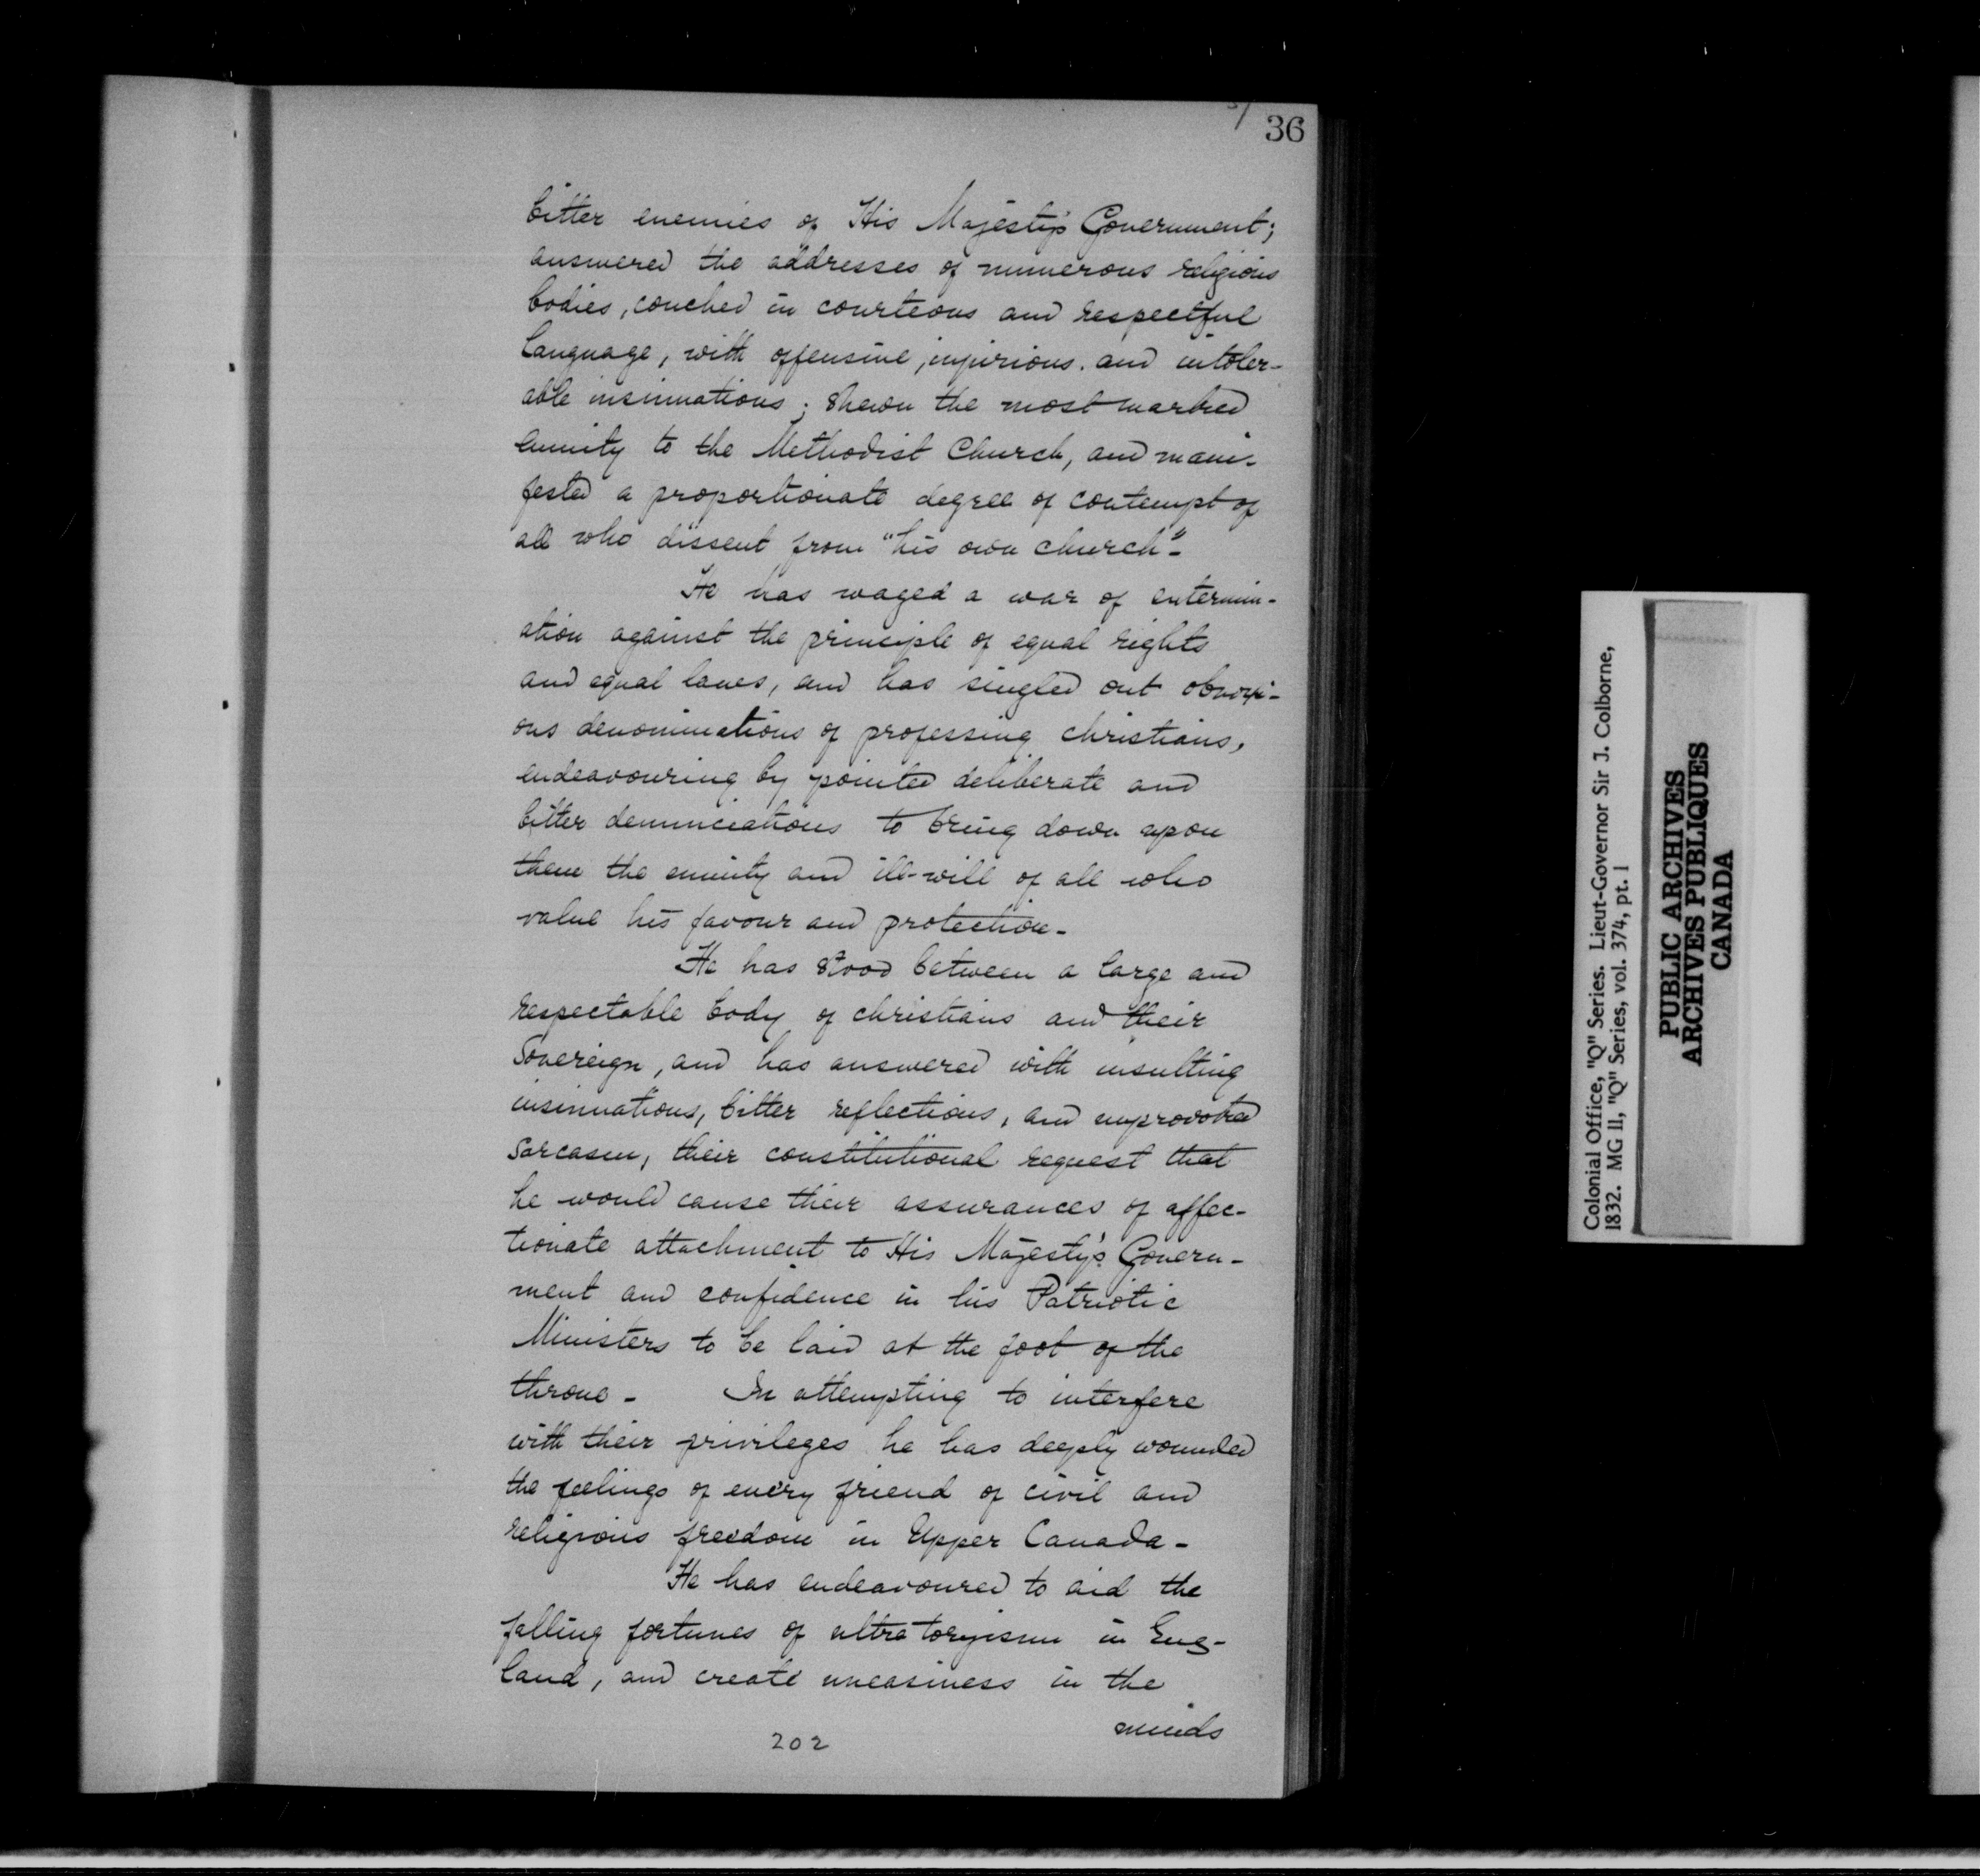 36
bitter enemies of His Majesty's Government;
answered the addresses of numerous religious
bodies, couched in courteous and respectful
language, with offensive, injurious. and intoler-
able insinuations; shewn the most marked
enmity to the Methodist Church, and mani-
fested a proportionate degree of contempt of
all who dissent from "his own church"-
He has waged a war of extermin-
ation against the principle of equal rights
and equal laws, and has singled out obnoxi-
ous denominations of professing christians,
endeavouring by pointed deliberate and
bitter denunciations to bring down upon
them the enmity and ill-will of all who
value his favour and protection-
He has stood between a large and
respectable body of christians and their
Sovereign, and has answered with insulting
insinuations, bitter reflections, and unprovoked
sarcasm, their constitutional request that
he would cause their assurances of affec-
tionate attachment to His Majesty's Govern-
ment and confidence in his Patriotic
Ministers to be laid at the foot of the
throne- In attempting to interfere
with their privileges he has deeply wounded
the feelings of every friend of civil and
religious freedom in Upper Canada-
He has endeavoured to aid the
falling fortunes of ultra toryism in Eng-
land, and create uneasiness in the
minds
202
Colonial Office, "Q" Series. Lieut-Governor Sir J. Colborne,
1832. MG 11, "Q" Series, vol. 374, pt. 1
PUBLIC ARCHIVES
ARCHIVES PUBLIQUES
CANADA